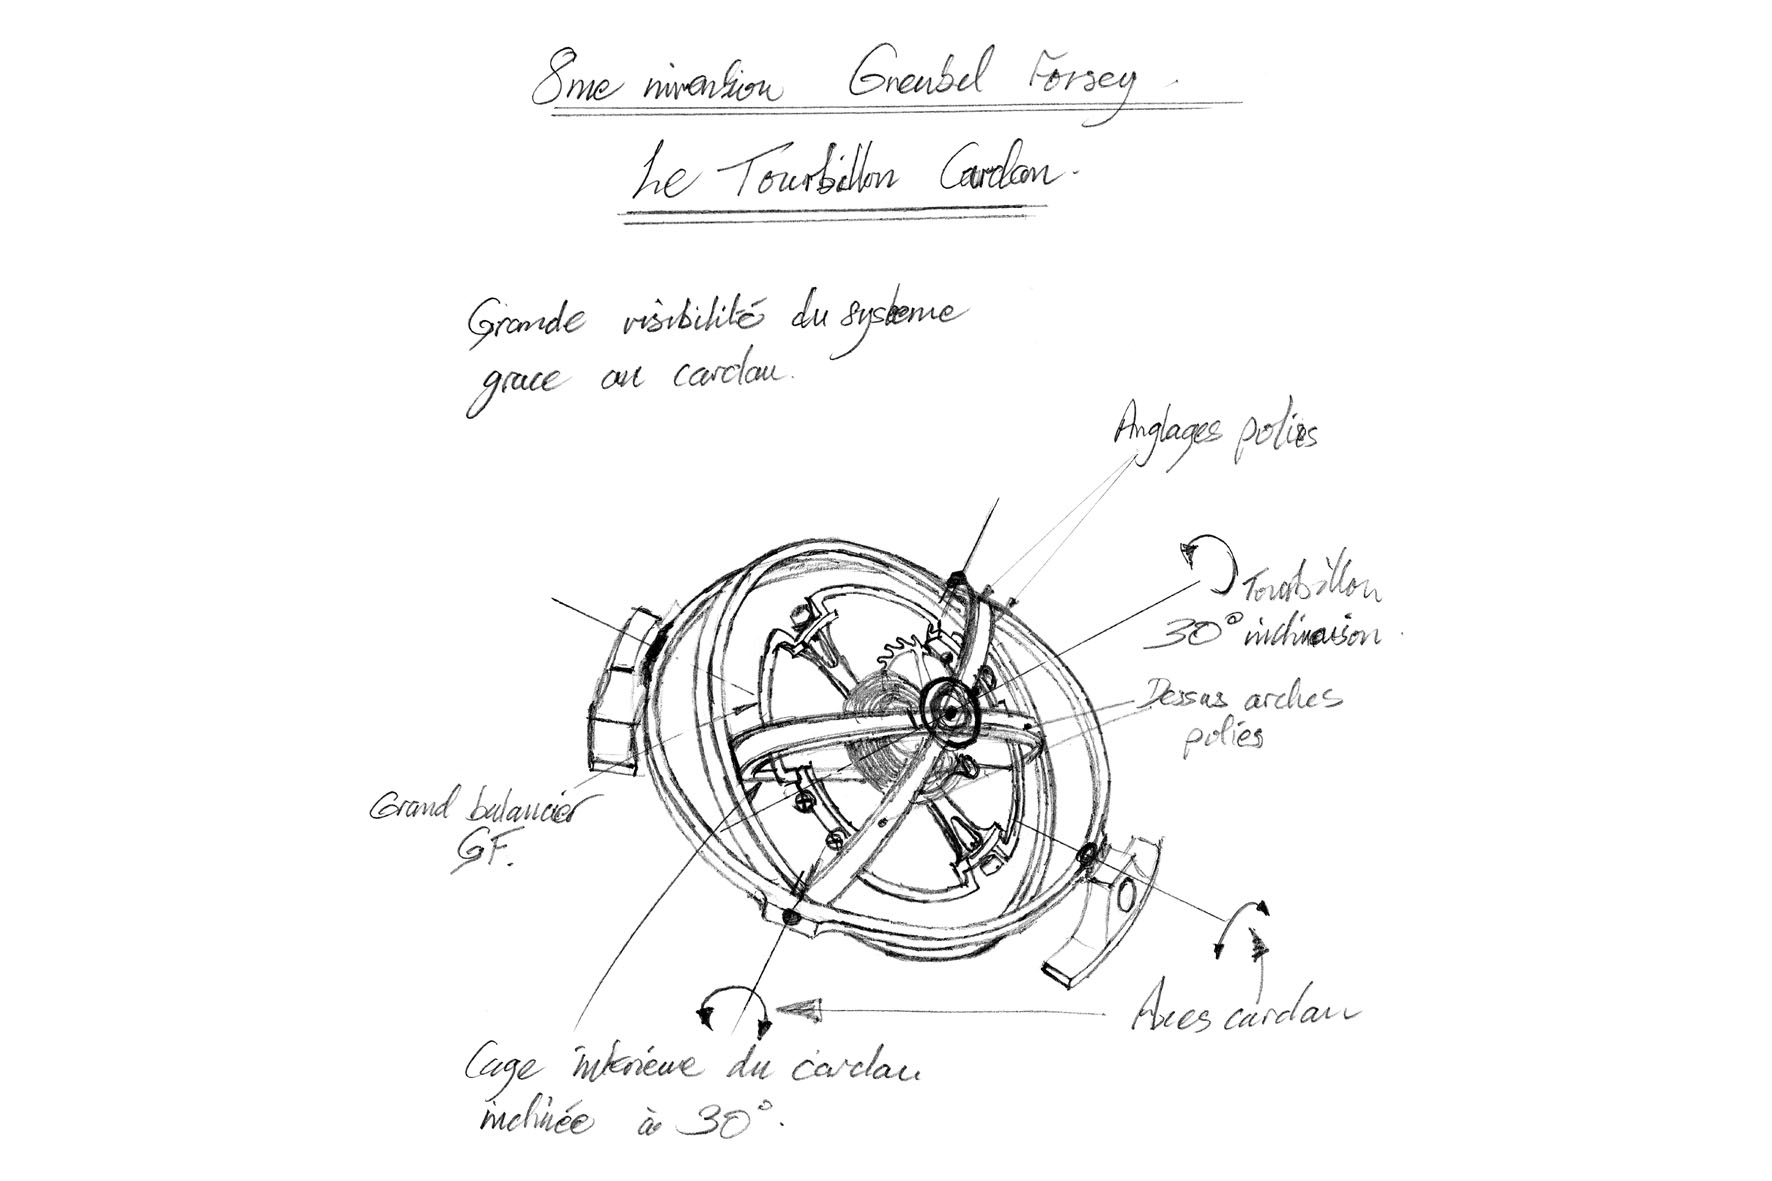 8me invention Greubel Forsey.
Le Tourbillon Cardan.
Grande visibilité du systeme
grace au cardan.
Anglages poliés
Tourbillon
30° inclinaison.
Dessus arches
poliés
Grand balancier
GF.
Axes cardan
Cage intérieure du cardan
inclinée à 30°.